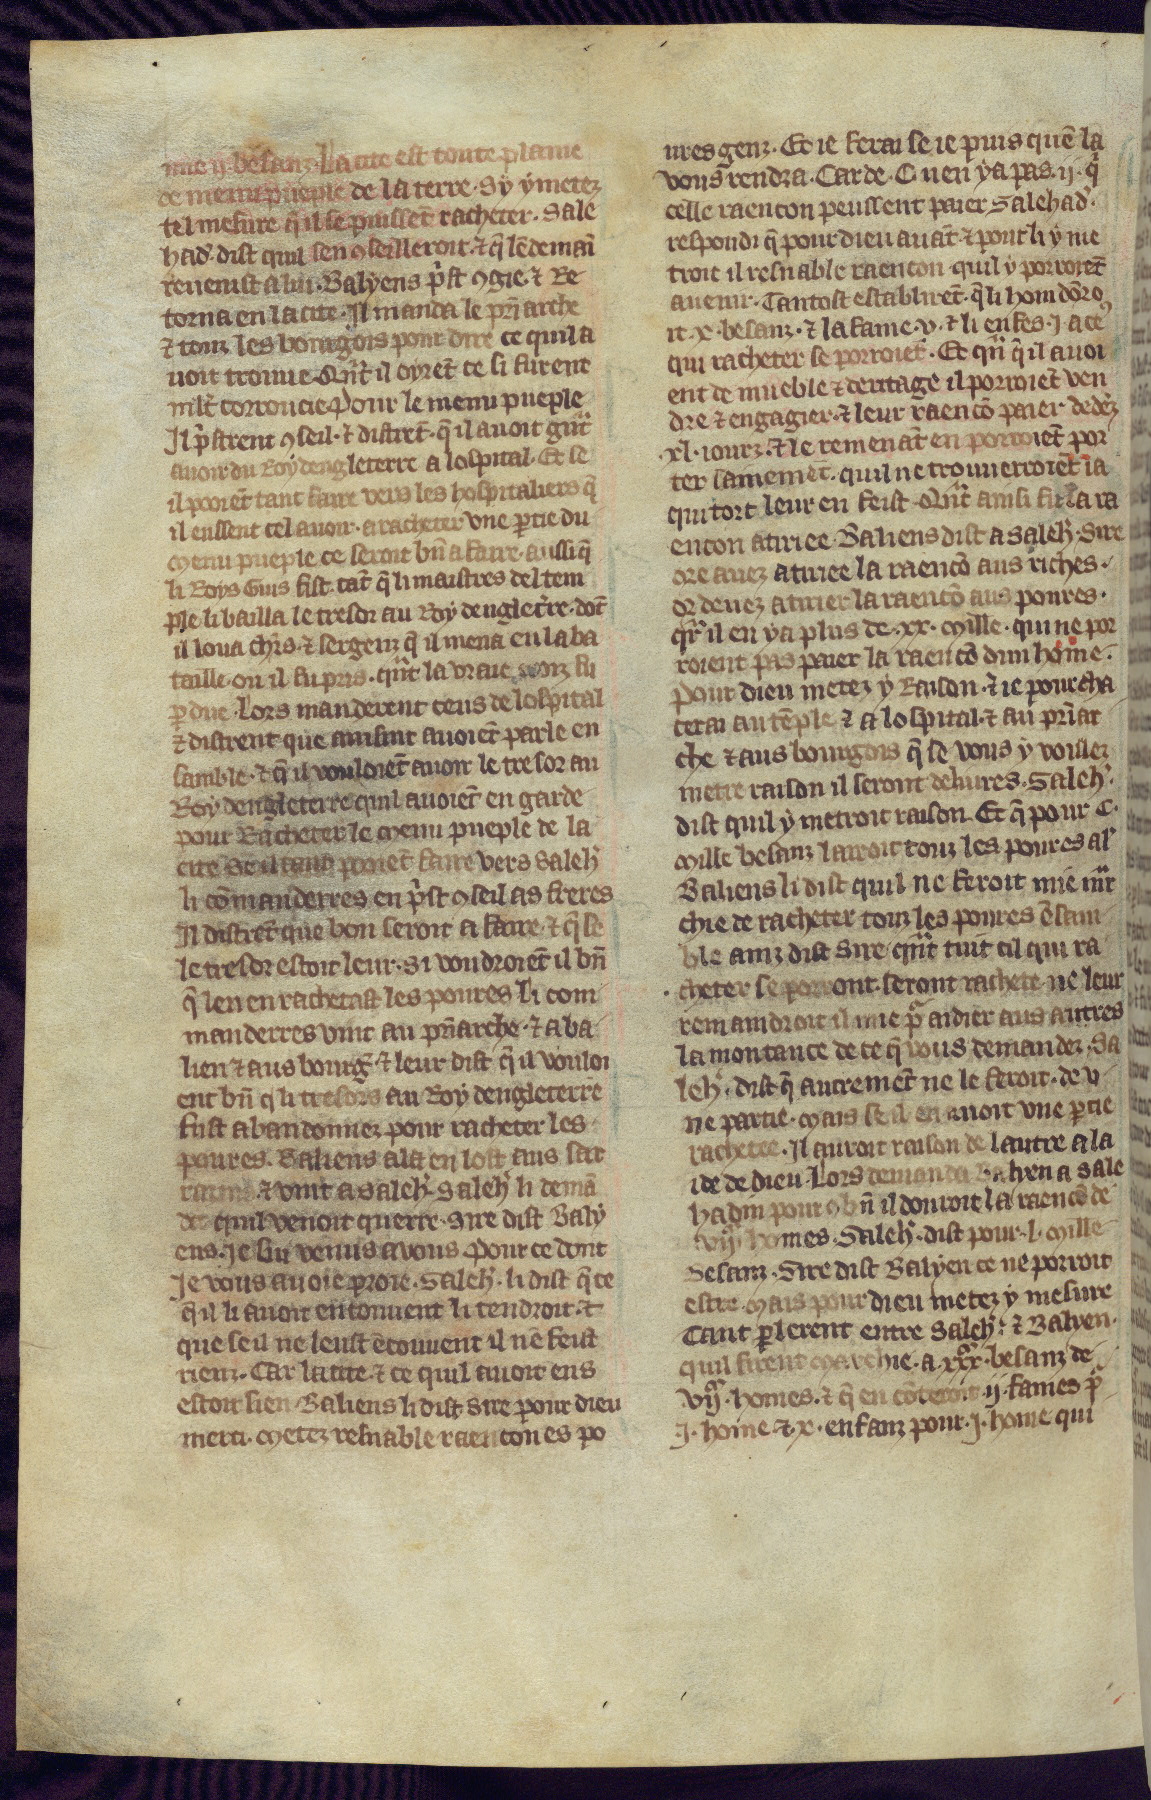 mie ij besanz. La cite est toute plaine
de menu pueple de la terre. Sy y metez
tel mesure q̄ il se puissēt racheter. Sale
had̛. dist quil sen ꝯseilleroit. ⁊ q̄ lēdemaī
reuenist a lui. Balyens p̛st ꝯgie. ⁊ Re
torna en la cite. Il manda le pr̄iarche
⁊ touz les bourgois pour dire ce quil a
uoit trouue. Qn̄t il oyrēt ce si furent
mlt̄ correucie pour le menu pueple
Il p̛strent ꝯseil. ⁊ distrēt. q̄ il auoit gn̄t
auoir du Roy dengleterre a lospital. Et se
il pooiēt tant faire vers les hospitaliers q̄
il eussent cel auoir. a racheter vne ꝑtie du
menu pueple ce seroit bn̄ a faire. aussi q̄
li Roys Guis fist. car̄ q̄ li maistres del tem
ple li bailla le tresor au Roy denglet̛re. dōt
il loua chr̄s. ⁊ sergenz q̄ il mena en la ba
taille. ou il fu pris. qn̄t la vraie croiz fu
ꝑdue. Lors manderent ceus de lospital
⁊ distrent que ainsint auoiēt parle en
samble. ⁊ q̄ il vouloiēt auoir le tresor au
Roy dengleterre quil auoiēt en garde
pour Racheter le menu pueple de la
cite se il tant pooiēt faire vers Saleh̛.
li cōmanderres en p̛st ꝯseil as freres
Il distrēt que bon seroit a faire. ⁊ q̄ se
le tresor estoit leur. si voudroiēt il bn̄
q̄ len en rachetast les poures li com
manderres vint au pr̄iarche. ⁊ a ba
lien ⁊ aus bourg̛. ⁊ leur dist q̄ il vouloi
ent bn̄ q̄ li tresors au Roy dengleterre
fust abandonnez pour racheter les
poures. Baliens ala en lost aus sar
razins ⁊ vint a saleh̛. Saleh̛ li demā
da quil venoit querre. Sire dist Baly
ens. Je sui venus a vous pour ce dont
Je vous auoie ꝓroie. Saleh̛. li dist q̄ ce
q̄ il li auoit en couuent li tendroit. ⁊
que se il ne leust ē couuent il nē feist
rienz. Car la cite. ⁊ ce quil auoit ens
estoit sien. Baliens li dist Sire pour dieu
merci. Metez resnable raencon es po
ures genz. Et ie ferai se ie puis quē la
vous rendra. Car de .C. n en y a pas .ij. q̄
celle raencon peussent paier. Salehad̛.
respondi q̄ pour dieu auāt. ⁊ pour li y me
troit il resnable raencon quil y porroiēt
auenir. Tantost establirēt. q̄ li hom dōro
it .x. besanz. ⁊ la fame .v. ⁊ li enfes .j. a ceꝰ
qui racheter se porroiēt. Et qn̄ q̄ il auoi
ent de mueble ⁊ deritage il porroiēt ven
dre ⁊ engagier. ⁊ leur raencō paier dedēz
.xl. iourz. ⁊ le remenāt en porroiēt por
ter sainemēt. quil ne trouuerroiēt ia
qui tort leur en feist. Qn̄t ainsi fu la ra
encon atiriee. Baliens dist a saleh̛. Sire
ore auez atiriee la raencō aus riches.
or deuez atirier la raencō aus poures.
qr̄ il en y a plus de .xx. Mille. qui ne por
roient pas paier la raencō dun home.
Pour dieu metez y Raison. ⁊ ie pourcha
cerai au tēple ⁊ a lospital. ⁊ au pr̄iar
che ⁊ aus bourgois q̄ se vous y voillez
metre raison il seront deliures. Saleh̛.
dist quil y metroit raison. Et q̄ pour C.
Mille besanz lairoit touz les poures al̛
Baliens li dist quil ne feroit mie mr̄
chie de racheter touz les poures ēsam
ble ainz dist Sire qn̄t tuit cil qui ra
cheter se porront. seront rachete ne leur
remaindroit il mie p̄ aidier aus autres
la montance de ce q̄ vous demandez. Sa
leh̛. dist q̄ autremēt ne le feroit. de v
ne partie. Mais se il en auoit vne ꝑtie
rachetee. Il auroit raison de lautre a la
ide de dieu. Lors demanda Balien a sale
hadin pour ꝯbn̄ il donroit la raencō de
vij homes. Saleh̛. dist pour .l. Mille
besanz. Sire dist Balyen ce ne porroit
estre. Mais pour dieu metez y mesure
Tant ꝑlerent entre Saleh̛. ⁊ Balyen.
quil firent marchie. a .xxx. besanz de
vij. homes. ⁊ q̄ en cōteroit .ij. fames p̄
.j. home. ⁊ .x. enfanz pour .j. home qui